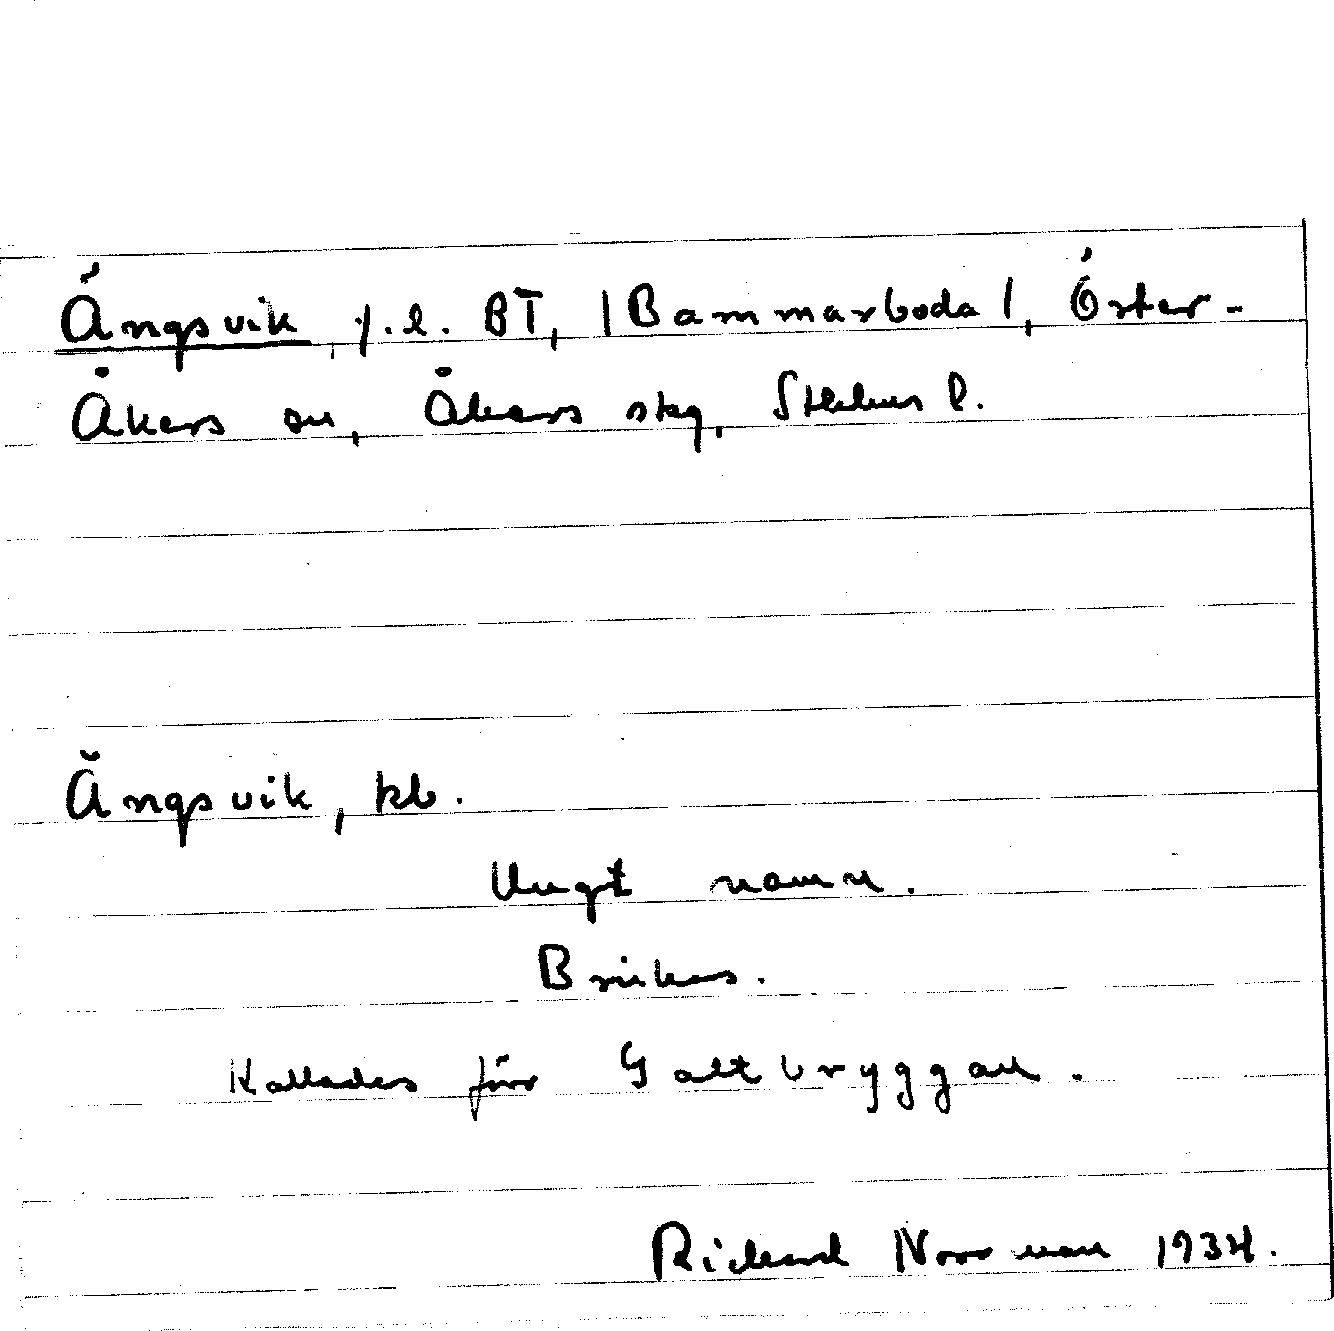 Ängsvik, ÿ.l. BT, |Bammarboda|, Öster-
Åkers sn, Åkers skg, Sthlms l.
Ängsvik, kb.
Ungt namn.
Brukas.
Kallades förr Galtbryggan.
Rickard Norrman 1934.